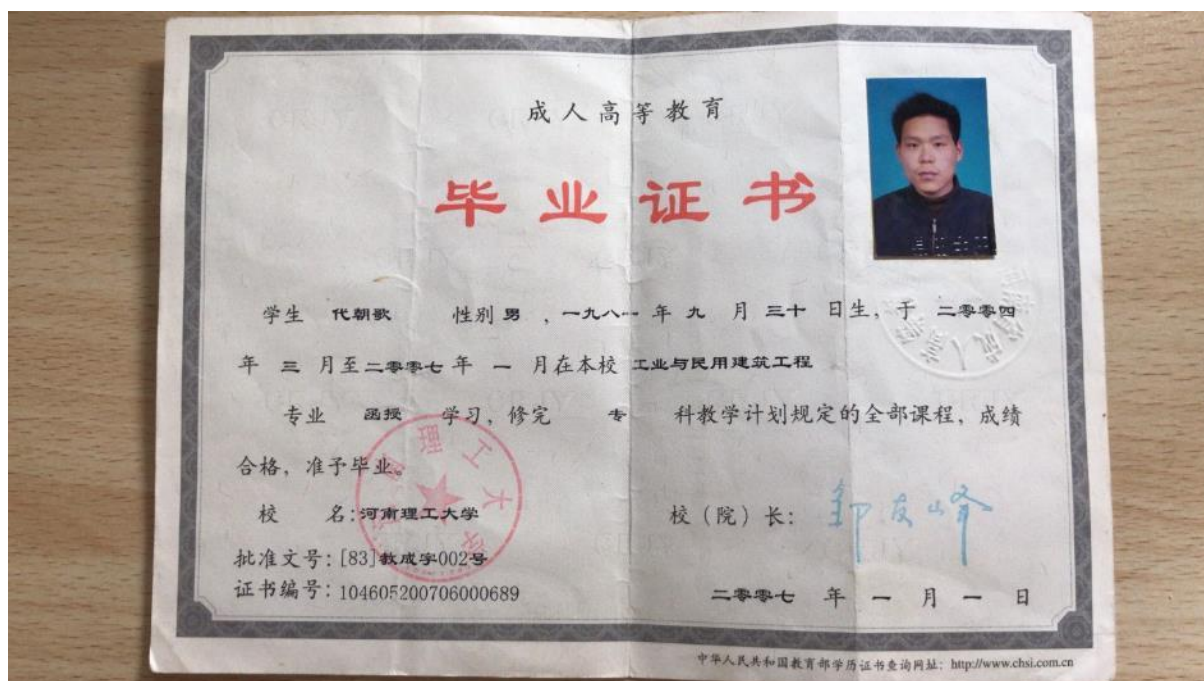 成人高等教育
毕业证书
学生 代朝歌 性别 男 ，一九八一 年 九 月 三十 日生，于 二零零四
年 三 月至 二零零七 年 一 月在本校 工业与民用建筑工程
专业 函授 学习，修完 专 科教学计划规定的全部课程，成绩
合格，准予毕业。
校 名：河南理工大学
校（院）长：邹友峰
批准文号：[83]教成字002号
证书编号：104605200706000689
二零零七 年 一 月 一 日
中华人民共和国教育部学历证书查询网址：http://www.chsi.com.cn